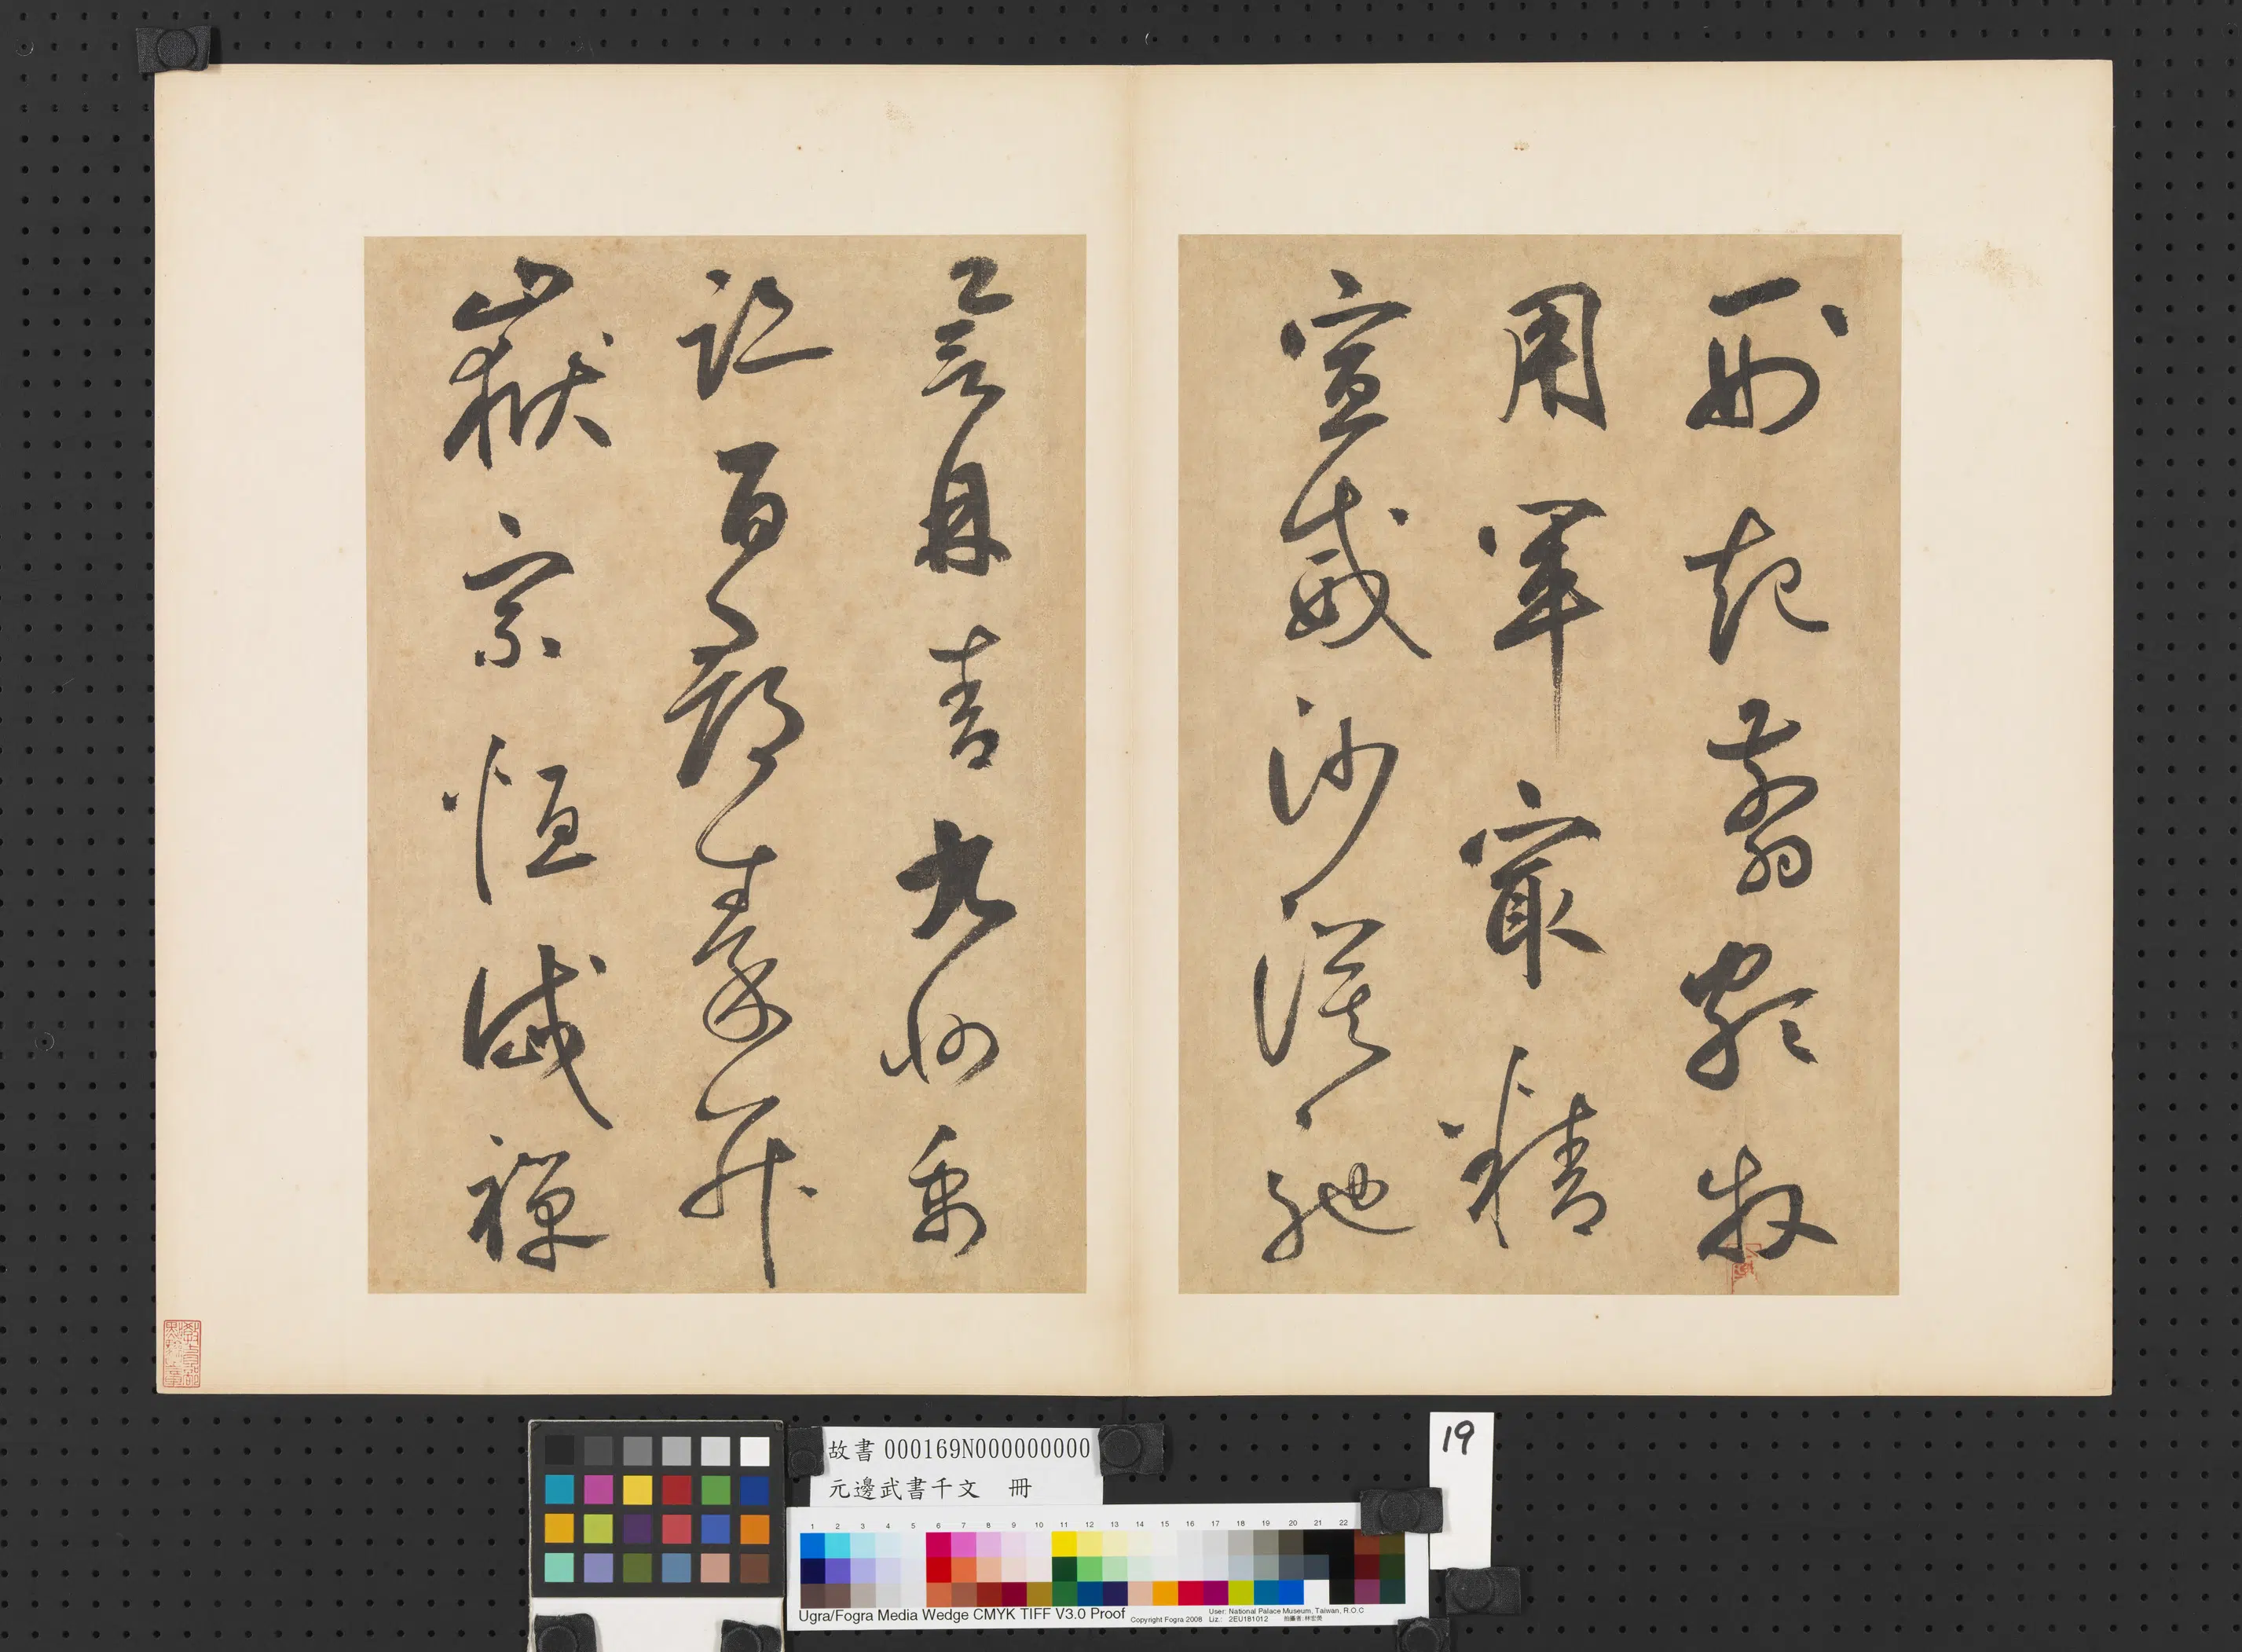 刑起翦頗牧
用軍最精
宣威沙漠馳
譽丹青九州禹
跡百郡秦并
嶽宗恒岱禪
故書 000169N000000000
元邊武書千文 冊
19
1 2 3 4 5 6 7 8 9 10 11 12 13 14 15 16 17 18 19 20 21 22
Ugra/Fogra Media Wedge CMYK TIFF V3.0 Proof
Copyright Fogra 2008
User: National Palace Museum, Taiwan, R.O.C
Liz.: 2EU181012